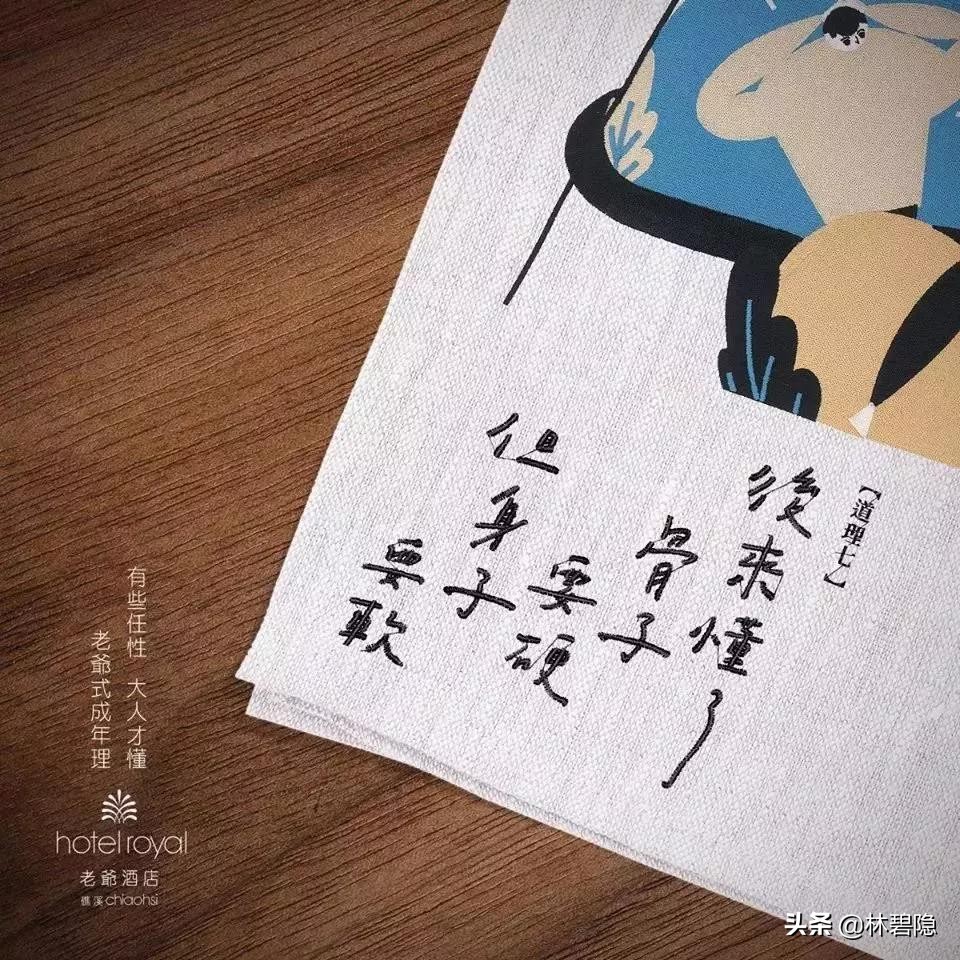 【道理七】
後来懂了
骨子
要硬
但身子
要軟
有些任性 大人才懂
老爺式成年理
hotel royal
老爺酒店
礁溪 chiaohsi
头条 @林碧隐